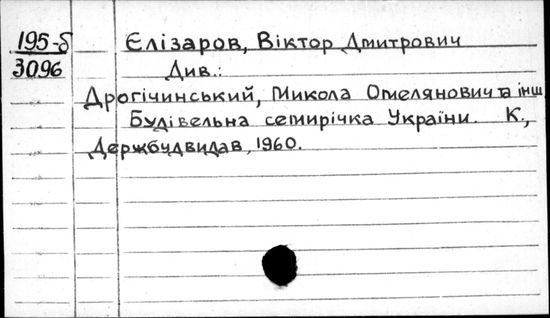 195-б Єлізаров, Віктор Дмитрович
3096 Див.:
Дрогічинський, Микола Омелянович та інш
Будівельна семирічка України. К.,
Держбудвидав, 1960.